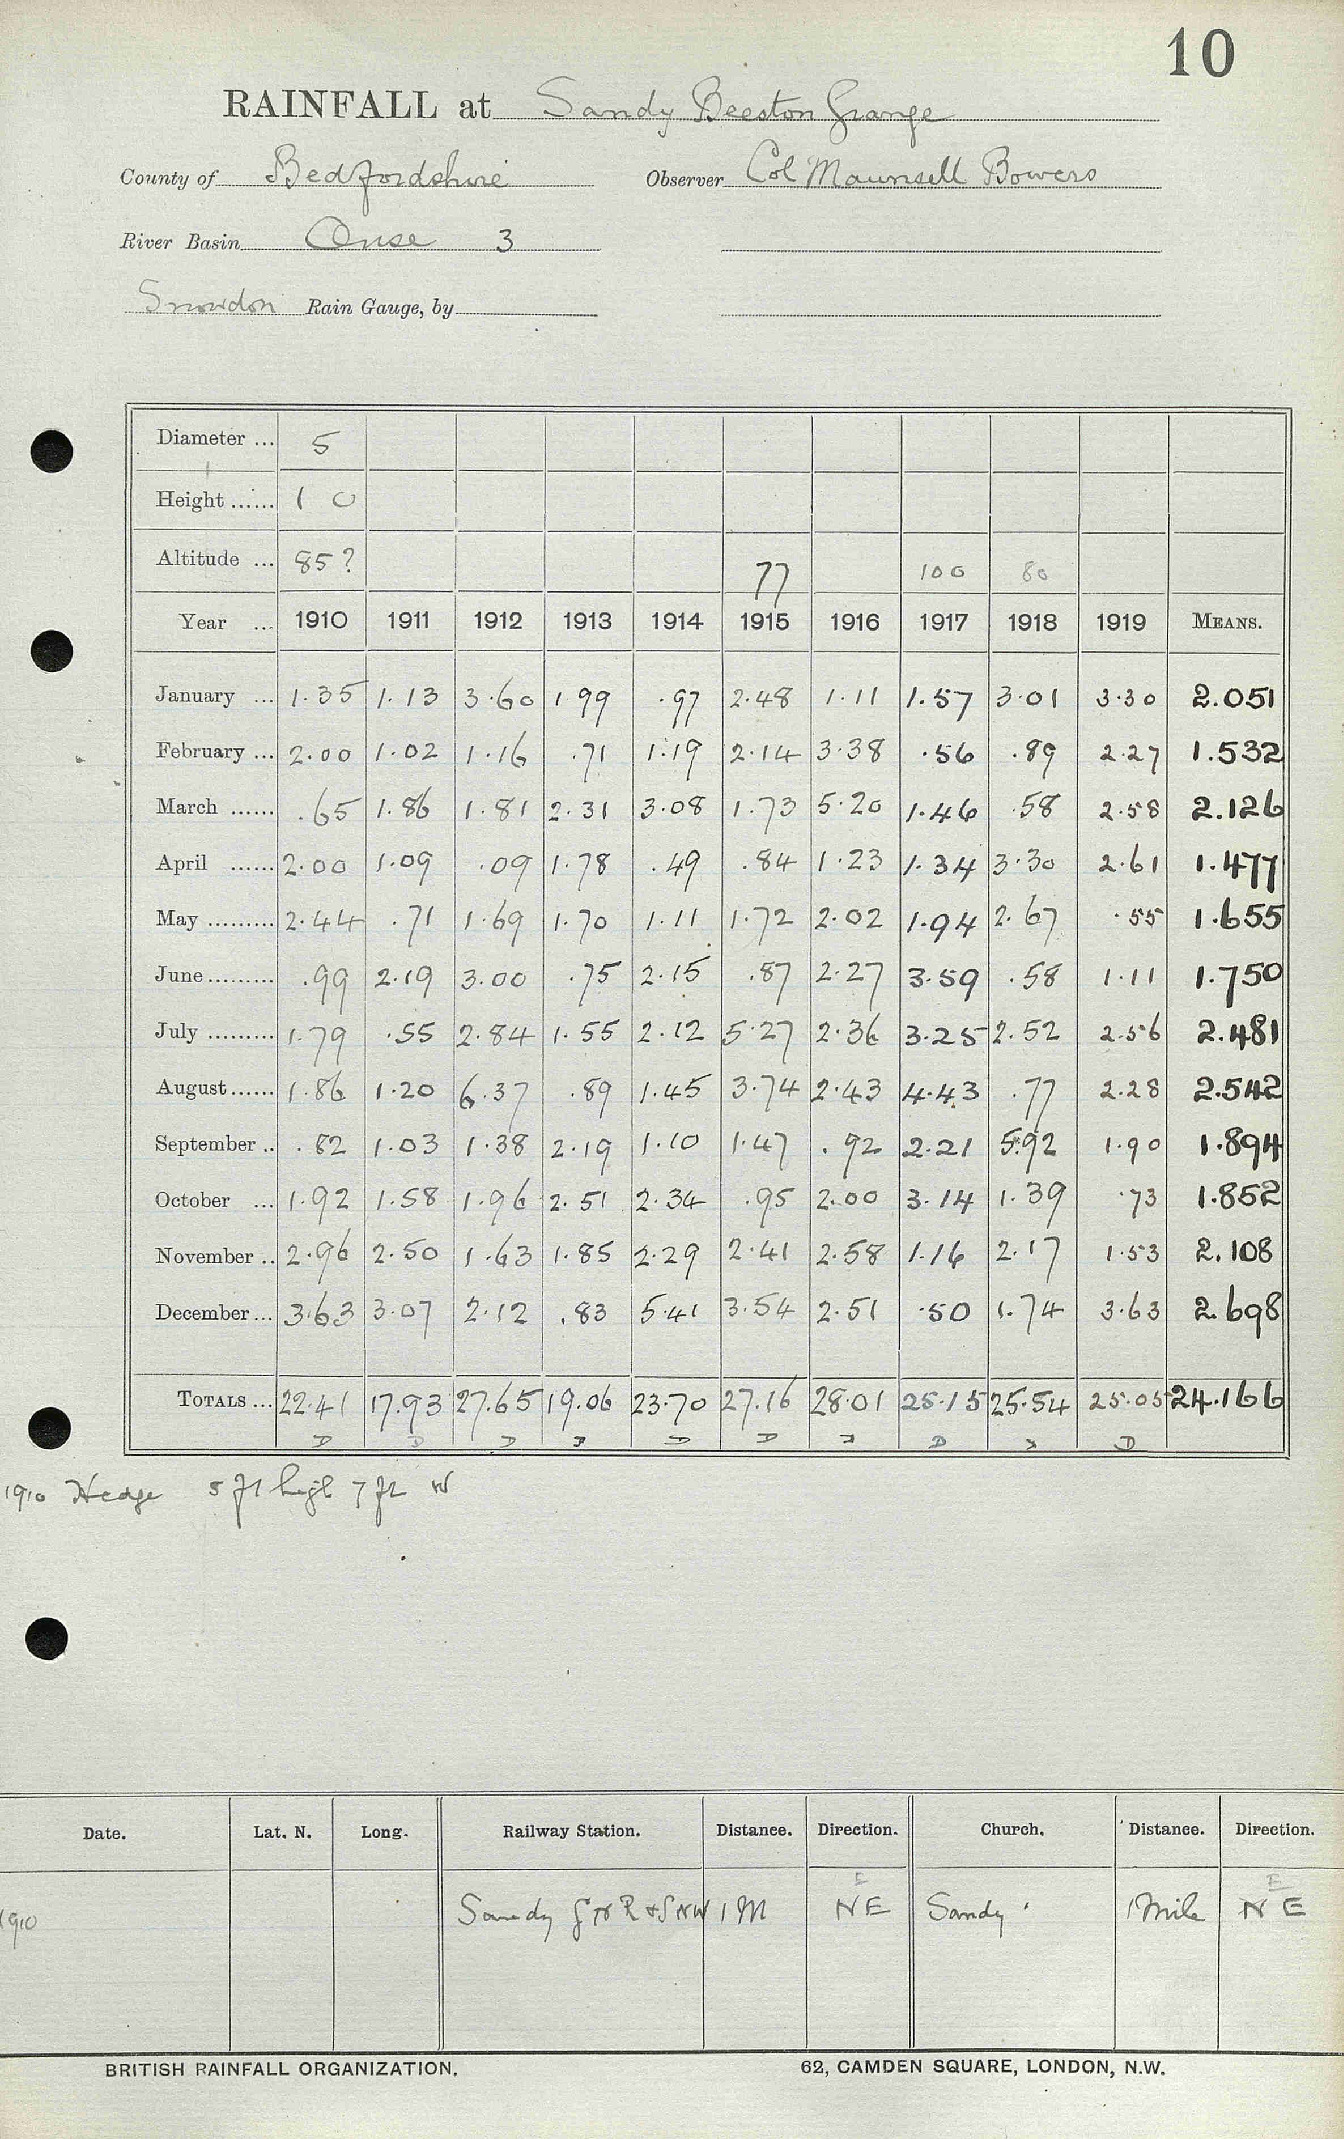 10
RAINFALL at Sandy Beeston Grange
County of Bedfordshire Observer Col Maunsell Bowers
River Basin Ouse 3
Snowdon Rain Gauge, by
Diameter ... 5
Height ...... 1 0
Altitude ... 85? 77 100 80
Year ... 1910 1911 1912 1913 1914 1915 1916 1917 1918 1919 MEANS.
January ... 1.35 1.13 3.60 1.99 .97 2.48 1.11 1.57 3.01 3.30 2.051
February ... 2.00 1.02 1.16 .71 1.19 2.14 3.38 .56 .89 2.27 1.532
March ...... .65 1.86 1.81 2.31 3.08 1.73 5.20 1.46 .58 2.58 2.126
April ...... 2.00 1.09 .09 1.78 .49 .84 1.23 1.34 3.30 2.61 1.477
May ......... 2.44 .71 1.69 1.70 1.11 1.72 2.02 1.94 2.67 .55 1.655
June ......... .99 2.19 3.00 .75 2.15 .87 2.27 3.59 .58 1.11 1.750
July ......... 1.79 .55 2.84 1.55 2.12 5.27 2.36 3.25 2.52 2.56 2.481
August ...... 1.86 1.20 6.37 .89 1.45 3.74 2.43 4.43 .77 2.28 2.542
September .. .82 1.03 1.38 2.19 1.10 1.47 .92 2.21 5.92 1.90 1.894
October ... 1.92 1.58 1.96 2.51 2.34 .95 2.00 3.14 1.39 .73 1.852
November .. 2.96 2.50 1.63 1.85 2.29 2.41 2.58 1.16 2.17 1.53 2.108
December ... 3.63 3.07 2.12 .83 5.41 3.54 2.51 .50 1.74 3.63 2.698
TOTALS ... 22.41 17.93 27.65 19.06 23.70 27.16 28.01 25.15 25.54 25.05 24.166
D D D D D D D D
1910 Hedge 5 ft high 7 ft W
Date. Lat. N. Long. Railway Station. Distance. Direction. Church. Distance. Direction.
E E
1910 Sandy G N R & S NW 1 M NE Sandy 1 Mile N E
BRITISH RAINFALL ORGANIZATION. 62, CAMDEN SQUARE, LONDON, N.W.